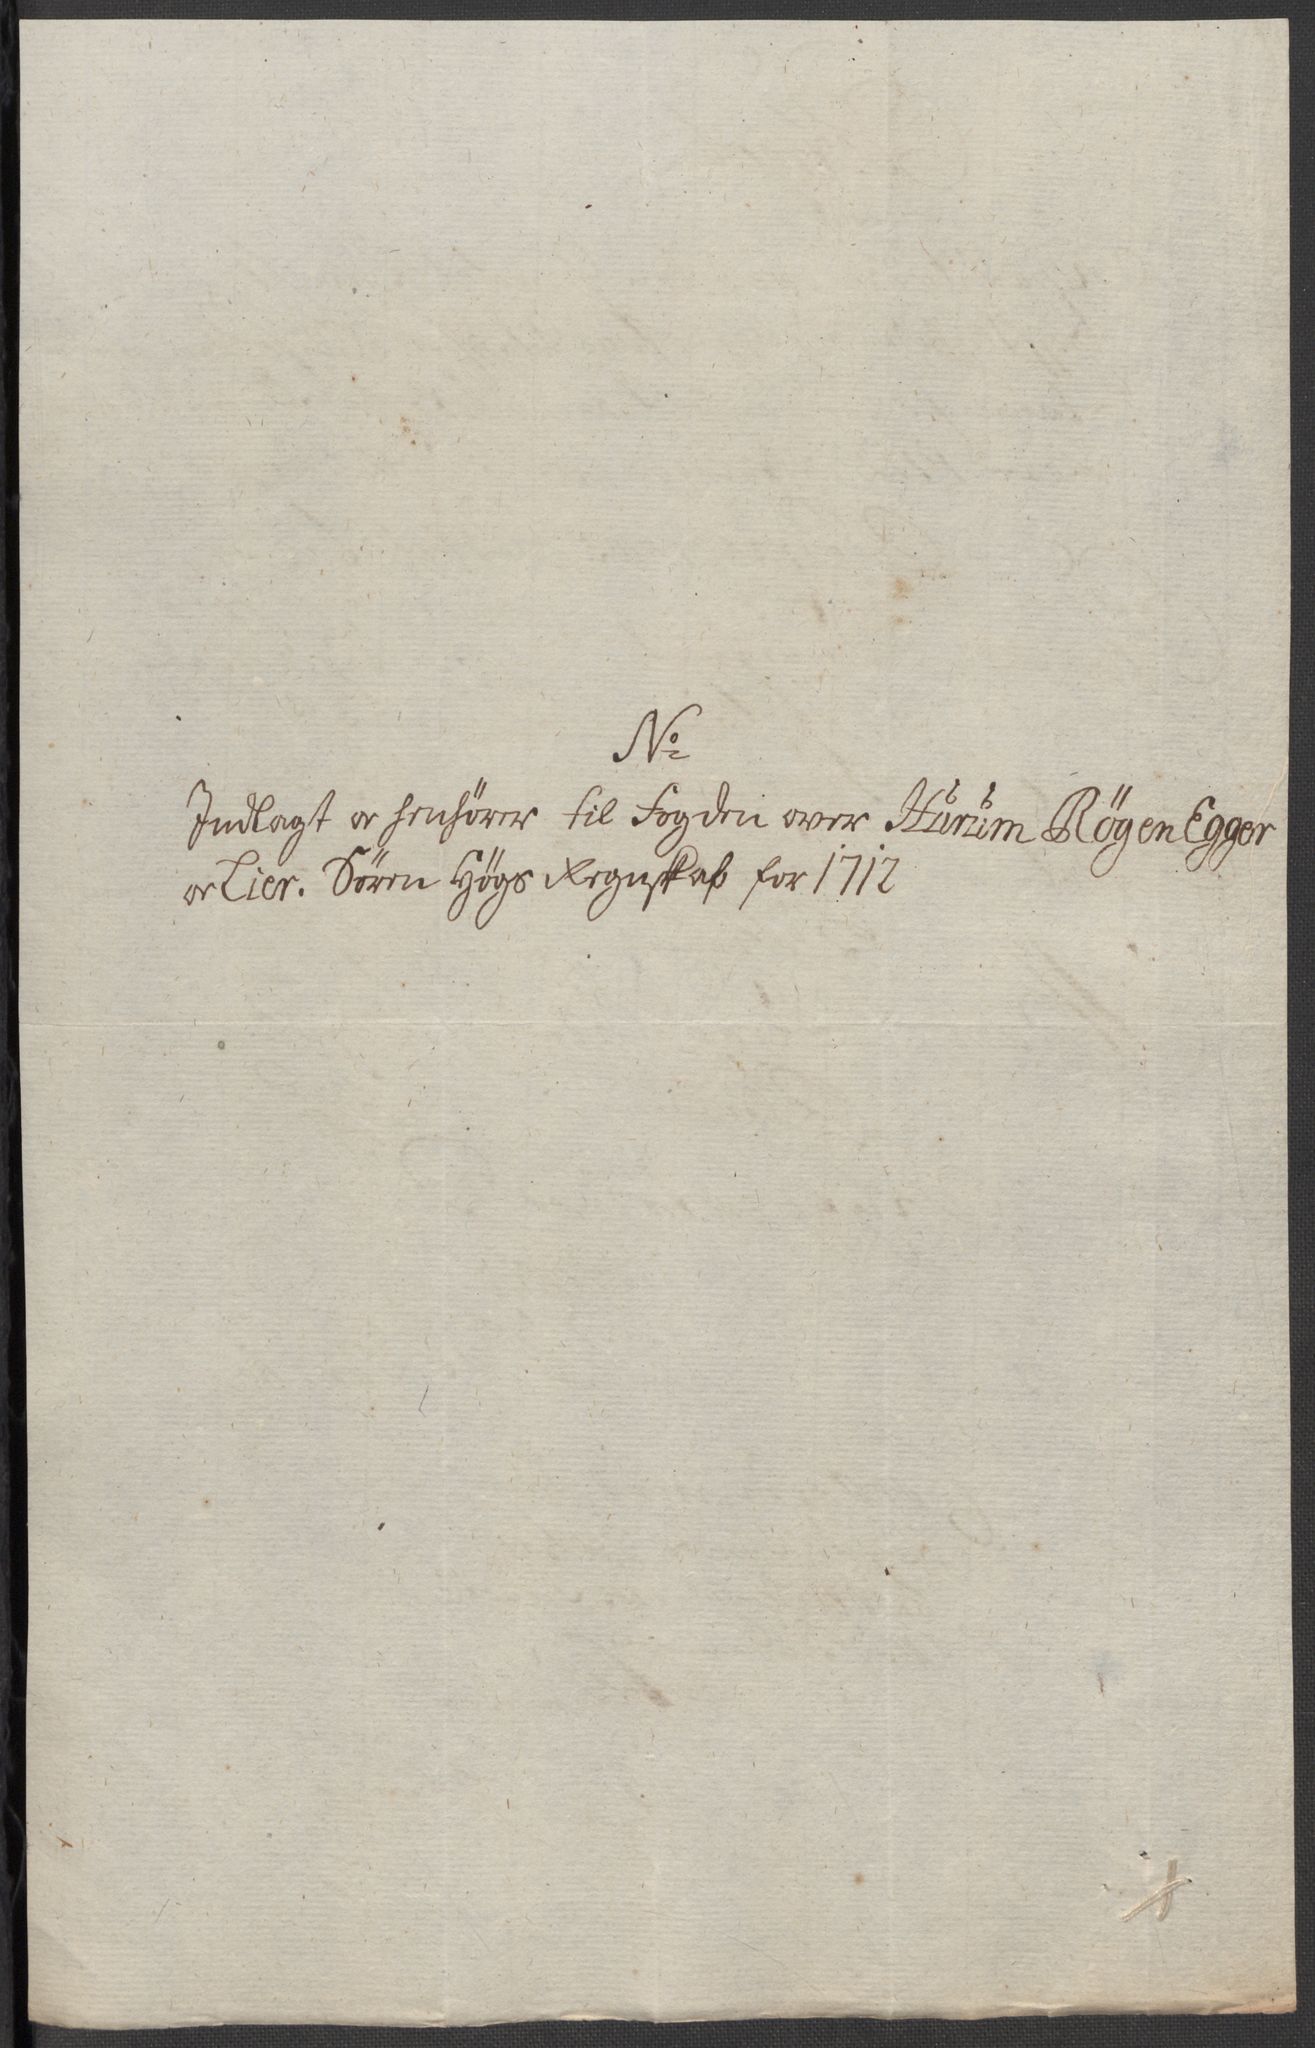 No
Indlagt oc henhörer til Fogden over Hürüm Rögen Egger
oc Lier. Sören Högs Regnskab for 1712